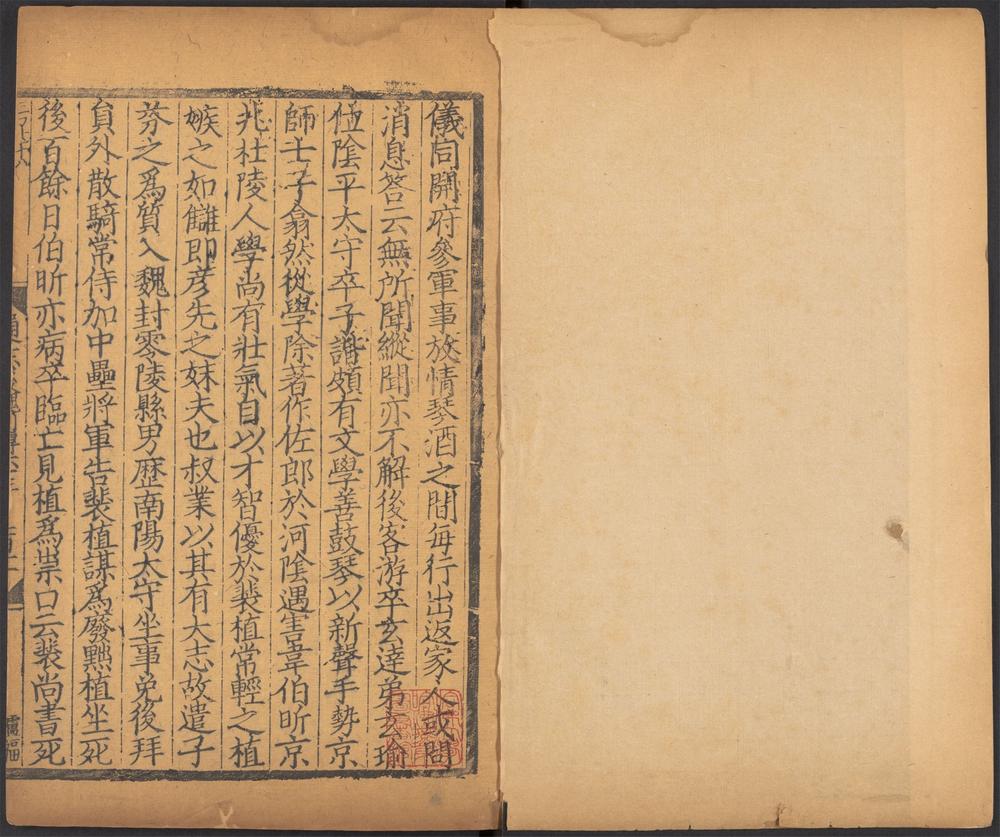 儀同開府參軍事放情琴酒之間每行出返家人或問
消息荅云無所聞縱聞亦不解後客游卒玄達弟玄瑜
位陰平太守卒子諧頗有文學善鼓琴以新聲手勢京
師士子翕然從學除著作佐郎於河陰遇害韋伯昕京
兆杜陵人學尚有壯氣自以才智優於裴植常輕之植
嫉之如讎即彦先之妹夫也叔業以其有大志故遣子
芬之為質入魏封零陵縣男歷南陽太守坐事免後拜
負外散騎常侍加中壘將軍告裴植謀為廢黜植坐死
後百餘日伯昕亦病卒臨亡見植為祟口云裴尚書死